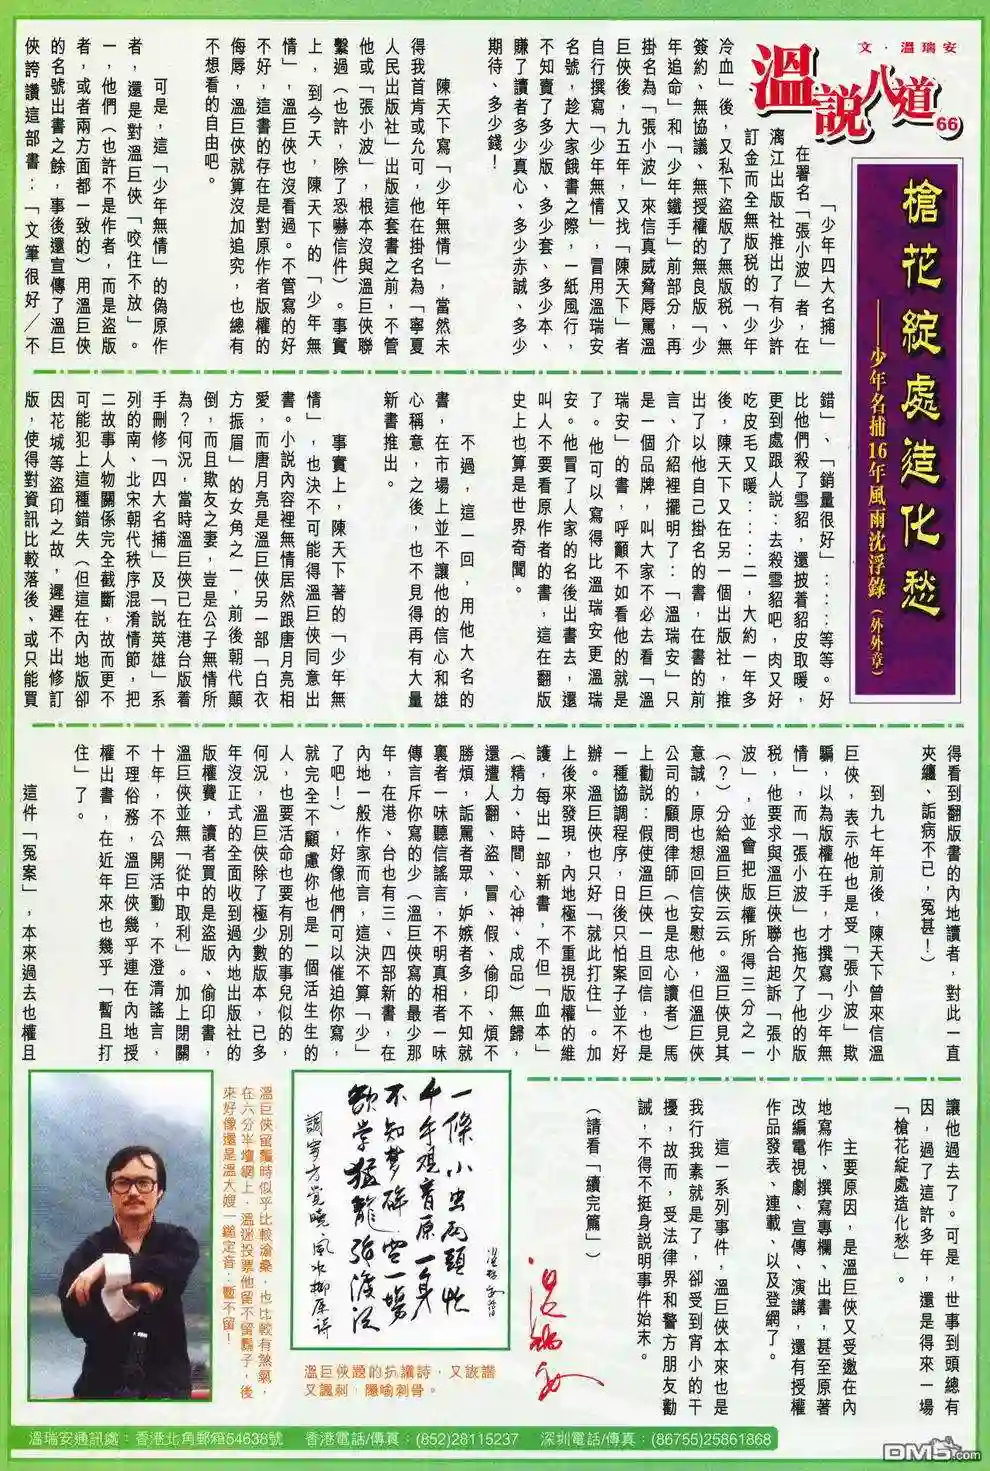 文．溫瑞安
溫説八道
66
槍花綻處造化愁
——少年名捕16年風雨沈浮錄（外外章）
「少年四大名捕」
在署名「張小波」者，在
漓江出版社推出了有少許
訂金而全無版税的「少年
冷血」後，又私下盜版了無版税、無
簽約、無協議、無授權的無良版「少
年追命」和「少年鐵手」前部分，再
掛名為「張小波」來信真威脅辱罵溫
巨俠後，九五年，又找「陳天下」者
自行撰寫「少年無情」，冒用溫瑞安
名號，趁大家餓書之際，一紙風行，
不知賣了多少版、多少套、多少本、
賺了讀者多少真心、多少赤誠、多少
期待、多少錢！
陳天下寫「少年無情」，當然未
得我首肯或允可，他在掛名為「寧夏
人民出版社」出版這套書之前，不管
他或「張小波」，根本沒與溫巨俠聯
繫過（也許，除了恐嚇信件）。事實
上，到今天，陳天下的「少年無
情」，溫巨俠也沒看過。不管寫的好
不好，這書的存在是對原作者版權的
侮辱，溫巨俠就算沒加追究，也總有
不想看的自由吧。
可是，這「少年無情」的偽原作
者，還是對溫巨俠「咬住不放」。
一，他們（也許不是作者，而是盜版
者，或者兩方面都一致的）用溫巨俠
的名號出書之餘，事後還宣傳了溫巨
俠誇讚這部書：「文筆很好／不
錯」、「銷量很好」……等等。好
比他們殺了雪貂，還披着貂皮取暖，
更到處跟人說：去殺雪貂吧，肉又好
吃皮毛又暖……二，大約一年多
後，陳天下又在另一個出版社，推
出了以他自己掛名的書，在書的前
言、介紹裡擺明了：「溫瑞安」只
是一個品牌，叫大家不必去看「溫
瑞安」的書，呼籲不如看他的就是
了。他可以寫得比溫瑞安更溫瑞
安。他冒了人家的名後出書去，還
叫人不要看原作者的書，這在翻版
史上也算是世界奇聞。
不過，這一回，用他大名的
書，在市場上並不讓他的信心和雄
心稱意，之後，也不見得再有大量
新書推出。
事實上，陳天下著的「少年無
情」，也決不可能得溫巨俠同意出
書。小説內容裡無情居然跟唐月亮相
愛，而唐月亮是溫巨俠另一部「白衣
方振眉」的女角之一，前後朝代顛
倒，而且欺友之妻，豈是公子無情所
為？何況，當時溫巨俠已在港台版着
手刪修「四大名捕」及「説英雄」系
列的南、北宋朝代秩序混淆情節，把
二故事人物關係完全截斷，故而更不
可能犯上這種錯失（但這在內地版卻
因花城等盜印之故，遲遲不出修訂
版，使得對資訊比較落後、或只能買
得看到翻版書的內地讀者，對此一直
夾纏、詬病不已，冤甚！）
到九七年前後，陳天下曾來信溫
巨俠，表示他也是受「張小波」欺
騙，以為版權在手，才撰寫「少年無
情」，而「張小波」也拖欠了他的版
税，他要求與溫巨俠聯合起訴「張小
波」，並會把版權所得三分之一
（？）分給溫巨俠云云。溫巨俠見其
意誠，原也想回信安慰他，但溫巨俠
公司的顧問律師（也是忠心讀者）馬
上勸説：假使溫巨俠一旦回信，也是
一種協調程序，日後只怕案子並不好
辦。溫巨俠也只好「就此打住」。加
上後來發現，內地極不重視版權的維
護，每出一部新書，不但「血本」
（精力、時間、心神、成品）無歸，
還遭人翻、盜、冒、假、偷印、煩不
勝煩，詬罵者眾，妒嫉者多，不知就
裏者一味聽信謠言，不明真相者一味
傳言斥你寫的少（溫巨俠寫的最少那
年，在港、台也有三、四部新書，在
內地一般作家而言，這決不算「少」
了吧！），好像他們可以催迫你寫，
就完全不顧慮你也是一個活生生的
人，也要活命也要有別的事兒似的，
何況，溫巨俠除了極少數版本，已多
年沒正式的全面收到過內地出版社的
版權費，讀者買的是盜版、偷印書，
溫巨俠並無「從中取利」。加上閉關
十年，不公開活動，不澄清謠言，
不理俗務，溫巨俠幾乎連在內地授
權出書，在近年來也幾乎「暫且打
住」了。
這件「冤案」，本來過去也權且
讓他過去了。可是，世事到頭總有
因，過了這許多年，還是得來一場
「槍花綻處造化愁」。
主要原因，是溫巨俠又受邀在內
地寫作、撰寫專欄、出書，甚至原著
改編電視劇、宣傳、演講，還有授權
作品發表、連載、以及登網了。
這一系列事件，溫巨俠本來也是
我行我素就是了，卻受到宵小的干
擾，故而，受法律界和警方朋友勸
誡，不得不挺身説明事件始末。
（請看「續完篇」）
一條小虫兩頭忙
千年觀音原一身
不知夢碎空一場
欲学猛龍強渡江
調寄方覺曉．風水柳原诗
溫瑞安
溫巨俠題的抗議詩，又詼諧
又諷刺，隱喻刺骨。
溫巨俠留鬚時似乎比較滄桑，也比較有煞氣，
在六分半壇網上，溫迷投票他留不留鬍子，後
來好像還是溫大嫂一鎚定音：暫不留！
溫瑞安通訊處：香港北角郵箱54638號　香港電話/傳真：(852)28115237　深圳電話/傳真：(86755)25861868
DM5.com